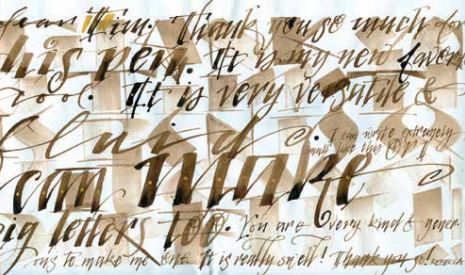 Dear Tim. Thank you so much for
his pen. It is my new favori
tool. It is very versatile &
fluid. I can write extremely
small like this
can make
ig letters too. You are very kind & gener-
ous to make me one. It is really swell! Thank you so! REBECCA